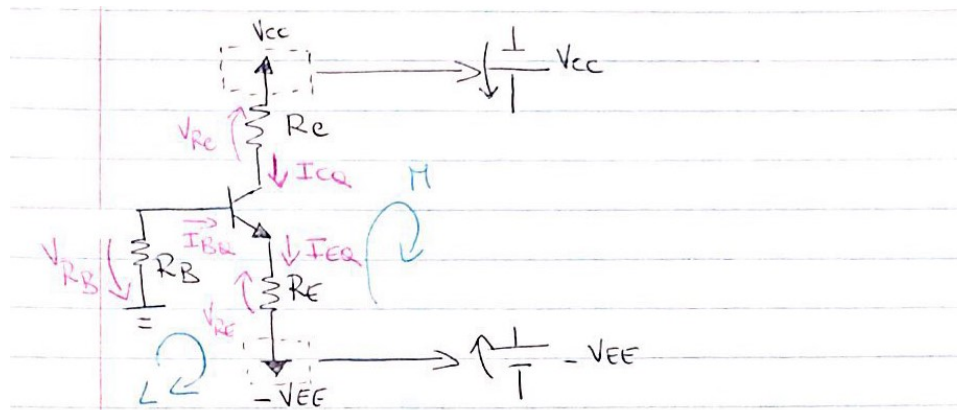 Vcc
Vcc
VRC
RC
ICQ
M
IBQ
IEQ
VRB
RB
RE
VRE
L
-VEE
-VEE